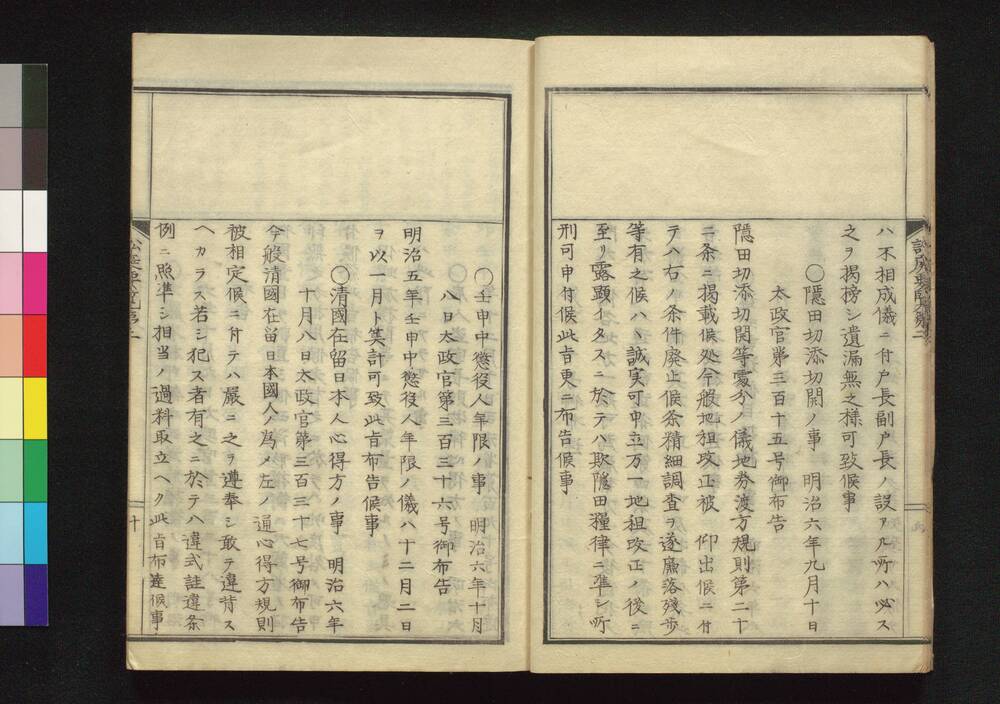 ハ不相成儀ニ付戸長副戸長ノ設アル所ハ必ス
之ヲ掲榜シ遺漏無之様可致候事
〇隠田切添切開ノ事　明治六年九月十日
太政官第三百十五号御布告
隠田切添切開等處分ノ儀地券渡方規則第二十
ニ条ニ掲載候処今般地租改正被　仰出候ニ付
テハ右ノ条件廃止候条精細調査ヲ遂脱落残歩
等有之候ハヽ誠実可申立万一地租改正ノ後ニ
至リ露顕イタスニ於テハ欺隠田糧律ニ準シ所
刑可申付候此旨更ニ布告候事
〇壬申中懲役人年限ノ事　明治六年十月
八日太政官第三百三十六号御布告
明治五年壬申中懲役人年限ノ儀ハ十二月二日
ヲ以一月ト算計可致此旨布告候事
〇清國在留日本人心得方ノ事　明治六年
十月八日太政官第三百三十七号御布告
今般清國在留日本國人ノ為メ左ノ通心得方規則
被相定候ニ付テハ嚴ニ之ヲ遵奉シ敢テ違背ス
ヘカラス若シ犯ス者有之ニ於テハ違式註違条
例ニ照準シ相当ノ過料取立ヘク此旨布達候事
十